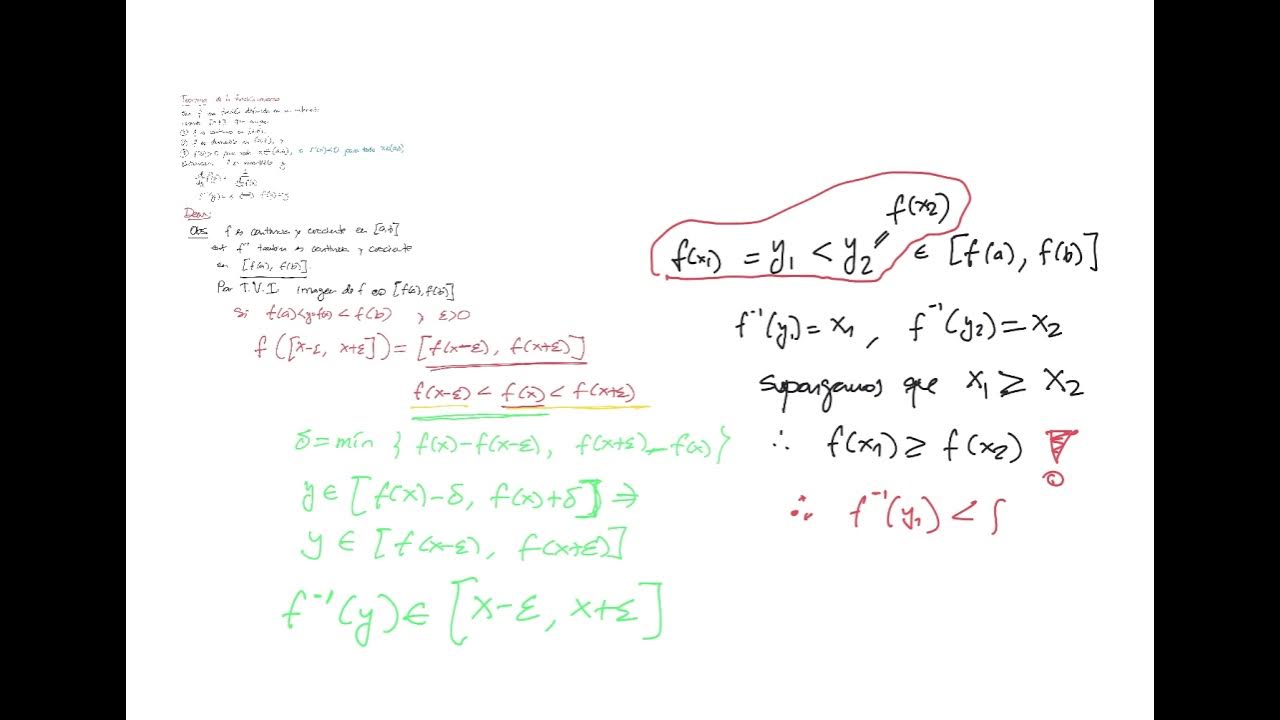 Teorema de la función inversa
Sea f una función definida en un intervalo
① f es continua en [a,b],
② f es derivable en (a,b), y
③ f'(x)>0 para todo x∈(a,b), o f'(x)<0 para todo x∈(a,b)
Entonces f es invertible y
f⁻¹(y)=x ⟺ f(x)=y
Dem:
Obs f es continua y creciente en [a,b]
f⁻¹ también es continua y creciente
en [f(a), f(b)]
Por T.V.I. imagen de f es [f(a), f(b)]
Si f(a)<y=f(x)<f(b) , ε>0
f([x-ε, x+ε]) = [f(x-ε), f(x+ε)]
f(x-ε) < f(x) < f(x+ε)
δ = mín { f(x)-f(x-ε), f(x+ε)-f(x) }
y ∈ [f(x)-δ, f(x)+δ] ⇒
y ∈ [f(x-ε), f(x+ε)]
f⁻¹(y) ∈ [x-ε, x+ε]
f(x₂)
f(x₁) = y₁ < y₂ = ∈ [f(a), f(b)]
f⁻¹(y₁) = x₁ , f⁻¹(y₂) = x₂
supongamos que x₁ ≥ x₂
∴ f(x₁) ≥ f(x₂) !
∴ f⁻¹(y₁) < f